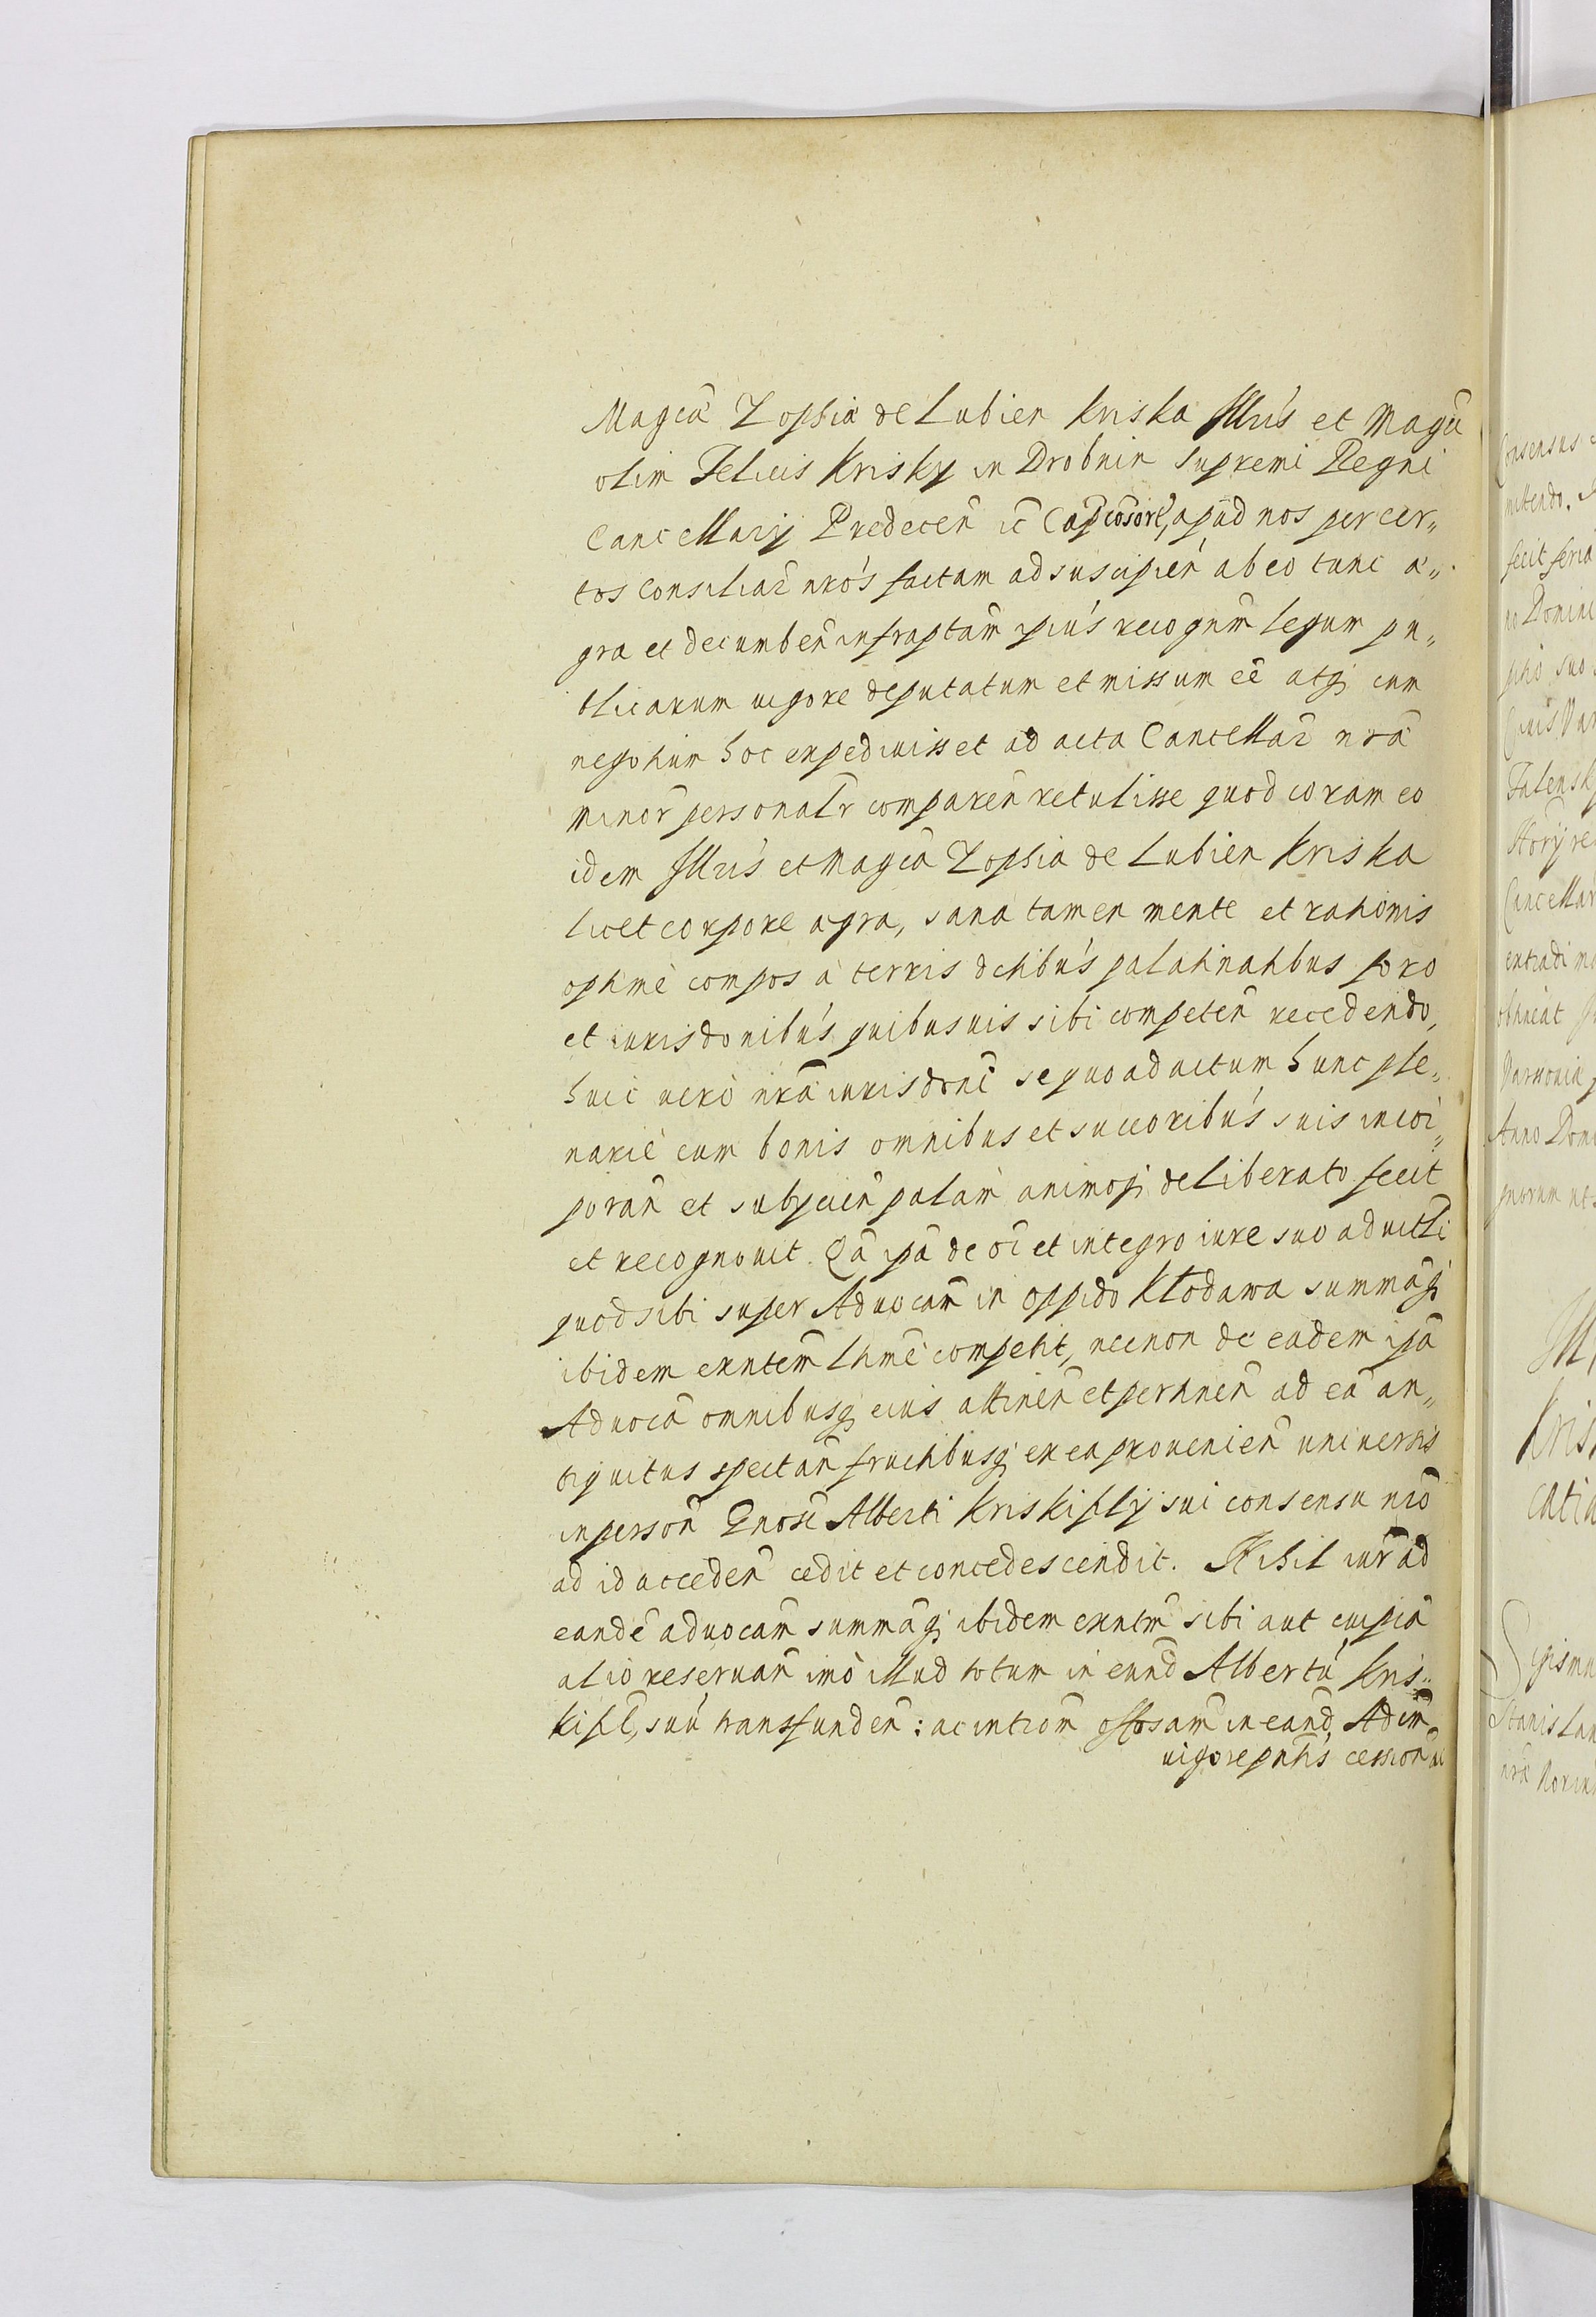 Magcã Zophia de Lubien Kriska Illris et Magci
olim Felicis Krisky in Drobnin supremi Regni
Cancellarij Predecen
apud nos per cer„
tos Consiliar̃ nrós factam ad suscipień ab eo tunc æ„
gra et decumbeñ infraptam ipiús recognm̃ legum pu„
blicarum vigore deputatum et missum eẽ atq; cum
negotium hoc expedivisset ad acta Cancellar̃ nrã
minor̃ personalr̃ compareñ retulisse quod coram eo
idem Illris et Magcã Zophia de Lubien Kriska
licet corpore ægra, sana tamen mente et rationis
optimè compos à terris dctibús palatinatibus foro
et iurisdonibús quibusvis sibi competeñ recedendo,
huic vero nrã iurisdoni se quo ad actum hunc ple„
nariè cum bonis omnibus et succoribús suis incor„
poran̄ et subycień palam animoq; deliberato fecit
et recognovit. Qã ipã de oi et integro iure suo advitli
quod sibi super Advocam̃ in oppido Kłodawa summãq;
ibidem exntem̃ lhmẽ competit, necnon de eadem ipã
Advocã omnibusq; eius attineñ et pertineñ ad eã an„
tiquitus spectañ fructibusq; ex ea provenień universis
in person̄ Gnosi Alberti Kriski flij sui consensu nrõ
ad id acceden̄ cedit et condescendit. Nihil iur̃ ad
eandẽ advocam̃ summãq; ibidem exntm̃ sibi aut cuipiã
alio reservañ imò illud totum in eund Albertú Kris„
ki fl, suú transfunden̄: ac intrõm in eand Adcm̃
vigore pntis cession̄
Consensus
mittendo.
fecit feria
no Domini
Cancellar
obtineat
Varsovia
Anno Domi
Kris
catio
Sigismu
Stanislau